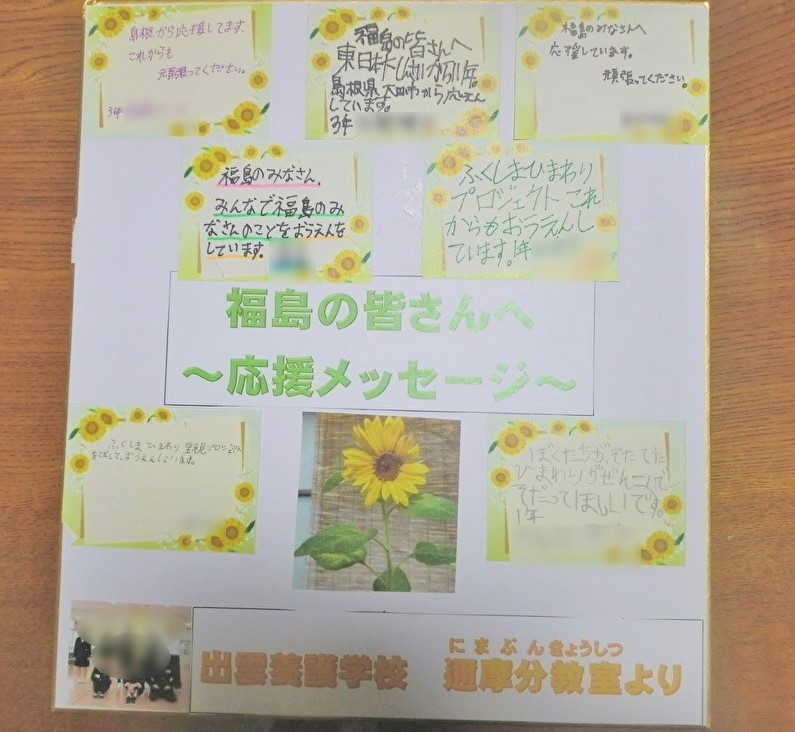 島根から応援してます。
これからも
頑張ってください。
3年
福島の皆さんへ
東日本大しんさいから11年。
島根県大田市から応えん
しています。
3年
福島のみなさんへ
応援しています。
頑張ってください。
福島のみなさん、
みんなで福島のみ
なさんのことをおうえんを
しています。
ふくしまひまわり
プロジェクトこれ
からもおうえんし
ています。1年
福島の皆さんへ
～応援メッセージ～
ふくしまひまわり里親プロジェクト
をとおして、おうえんしています。
ぼくたちがそだてた
ひまわりがぜんこくで
そだってほしいです。
1年
出雲養護学校
にまぶんきょうしつ
邇摩分教室より